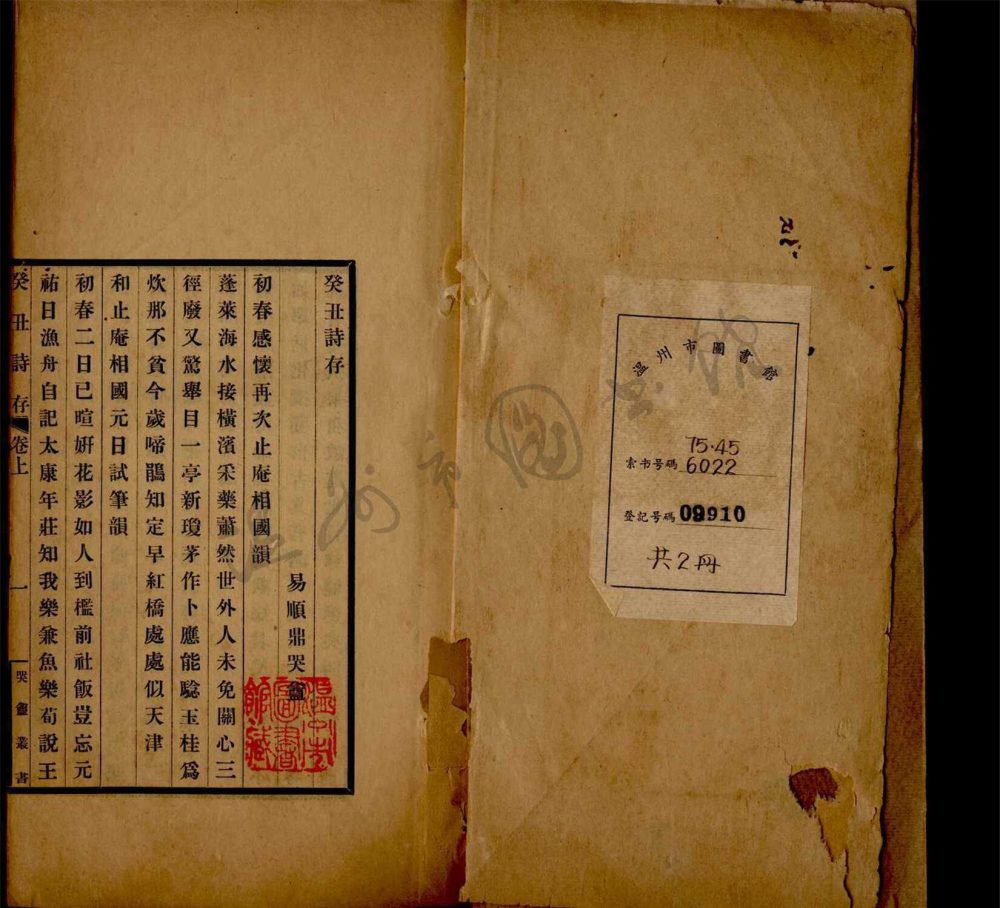 温州市圖書館
75.45
索书号碼 6022
登記号碼 09910
共2册
癸丑詩存
易順鼎哭盦
初春感懷再次止庵相國韻
蓬萊海水接橫濱采藥蕭然世外人未免關心三
徑廢又驚舉目一亭新瓊茅作卜應能驗玉桂爲
炊那不貧今歲啼鵑知定早紅橋處處似天津
和止庵相國元日試筆韻
初春二日已暄妍花影如人到檻前社飯豈忘元
祐日漁舟自記太康年莊知我樂兼魚樂荀說王
癸丑詩存 卷上 一 哭盦叢書
温州市圖書館藏
温州市圖书館